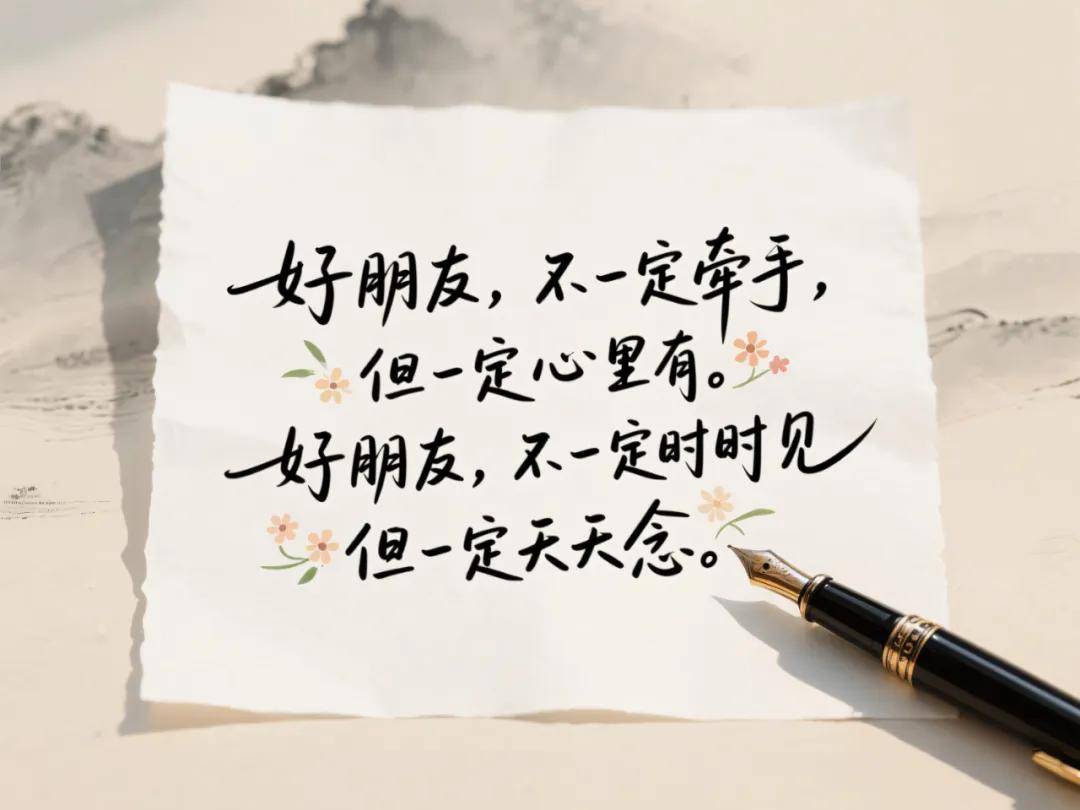 好朋友，不一定牵手，
但一定心里有。
好朋友，不一定时时见
但一定天天念。